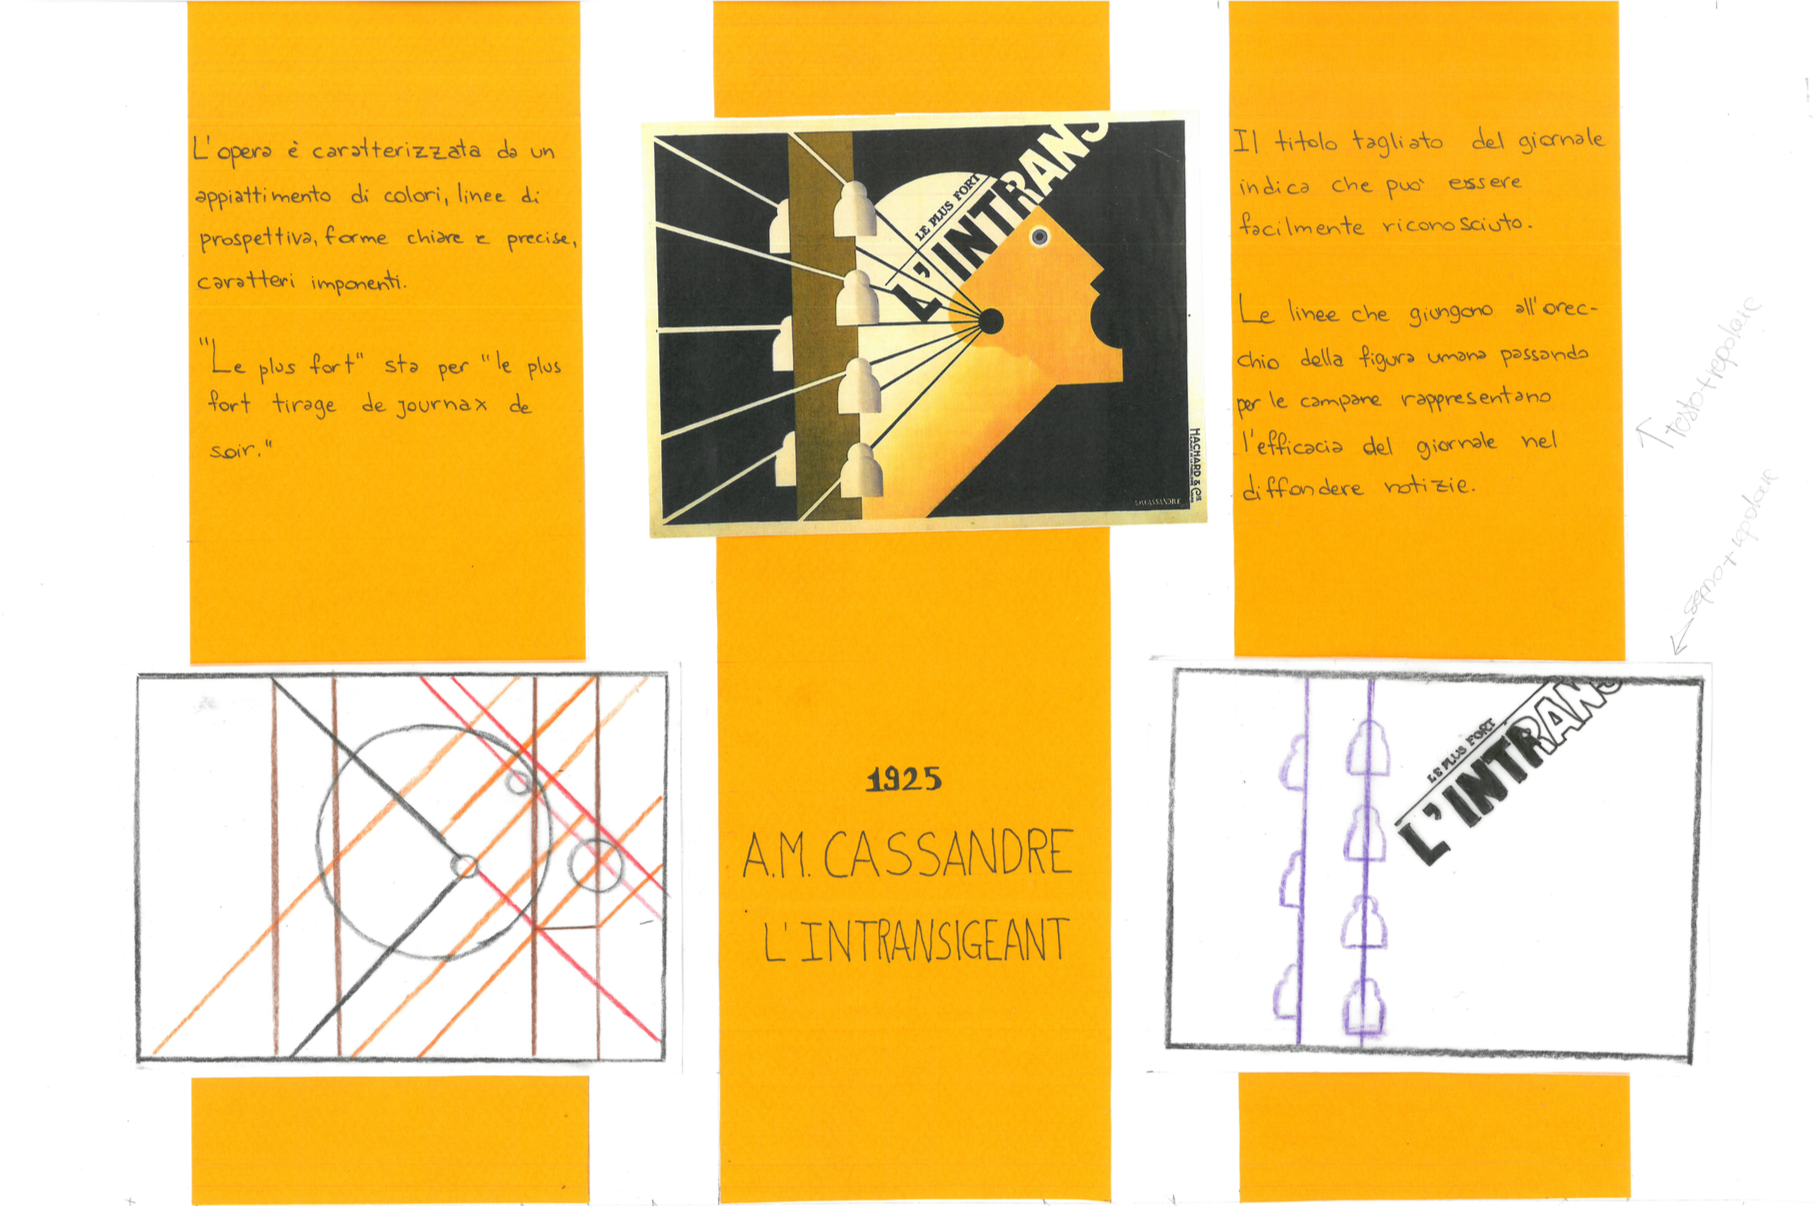 L'opera è caratterizzata da un
appiattimento di colori, linee di
prospettiva, forme chiare e precise,
caratteri imponenti.
"Le plus fort" sta per "le plus
fort tirage de journax de
soir."
LE PLUS FORT
L'INTRANS
HACHARD & CIE
A.M.CASSANDRE
Il titolo tagliato del giornale
indica che può essere
facilmente riconosciuto.
Le linee che giungono all'orec-
chio della figura umana passando
per le campane rappresentano
l'efficacia del giornale nel
diffondere notizie.
1925
A.M. CASSANDRE
L'INTRANSIGEANT
LE PLUS FORT
L'INTRANS